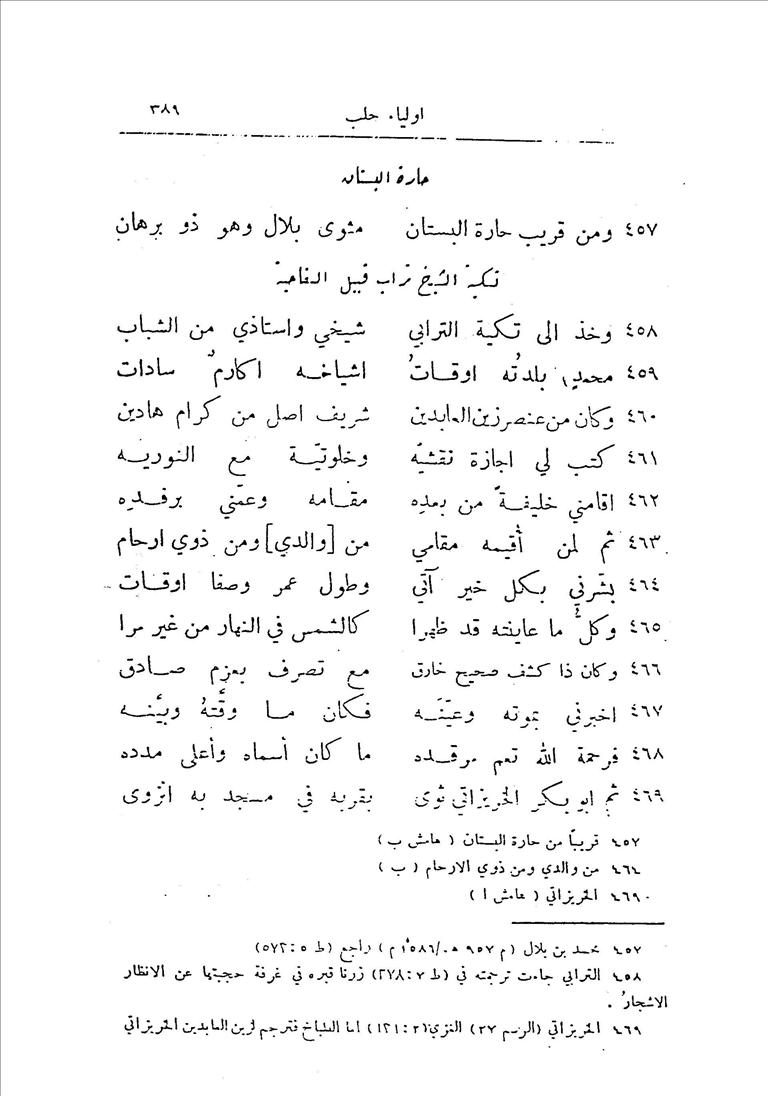 اولياء حلب ٣٨٩
حارة البستان
٤٥٧ ومن قريب حارة البستان مثوى بلال وهو ذو برهان
تكية الشيخ تراب قبيل
٤٥٨ وخذ الى تكية الترابي شيخي واستاذي من الشباب
٤٥٩ محمدٍ بلدتُه اوقـاتُ اشياخـه اكارمٌ سادات
٤٦٠ وكان من عنصر زين العابدين شريف اصل من كرام هادين
٤٦١ كتب لي اجازة نقشيّه وخلوتيّـة مع النوريـه
٤٦٢ اقامني خليفـةً من بعدِه مقـامه وعمّني برفـده
٤٦٣ ثم لمن أُقيمه مقامي من [والدي] ومن ذوي ارحام
٤٦٤ بشّرني بكل خير آتي وطول عمر وصفا اوقـات
٤٦٥ وكلُّ ما عاينته قد ظهرا كالشمس في النهار من غير مرا
٤٦٦ وكان ذا كشف صحيح خارق مع تصرف بعزم صـادق
٤٦٧ اخبرني بموته وعيّنـه فكان مـا وقّتهُ وبيّنـه
٤٦٨ فرحمة الله تعم مرقـده ما كان أسماه وأعلى مدده
٤٦٩ ثم ابو بكر الحريزاتي ثوى بقربه في مسجد به انزوى
٤٥٧ قريباً من حارة البستان ( هامش ب )
٤٦٤ من والدي ومن ذوي الارحام ( ب )
٤٦٩ الحريزاتي ( هامش ا )
٤٥٧ محمد بن بلال (م ٩٥٧ هـ /١٥٨٦ م ) راجع (ط ٥ : ٥٧٢)
٤٥٨ الترابي جاءت ترجمته في (ط ٧ : ٢٧٨) زرنا قبره في غرفة حجبتها عن الانظار
الاشجار .
٤٦٩ الحريزاتي (الرسم ٢٧) الغزي (٢ : ١٢١) اما الطباخ فترجم لزين العابدين الحريزاتي